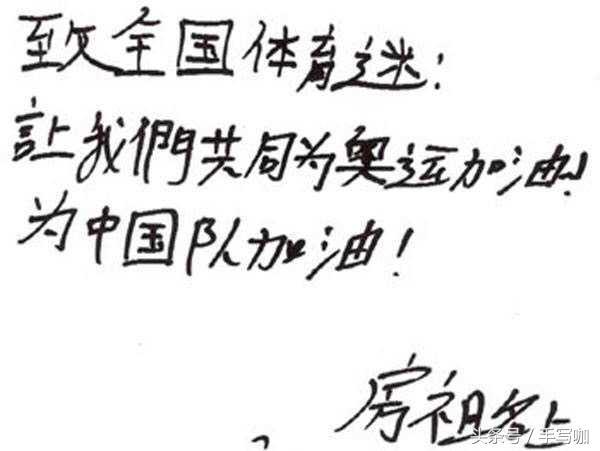 致全国体育迷：
让我們共同为奥运加油！
为中国队加油！
房祖名上
头条号 / 手写咖